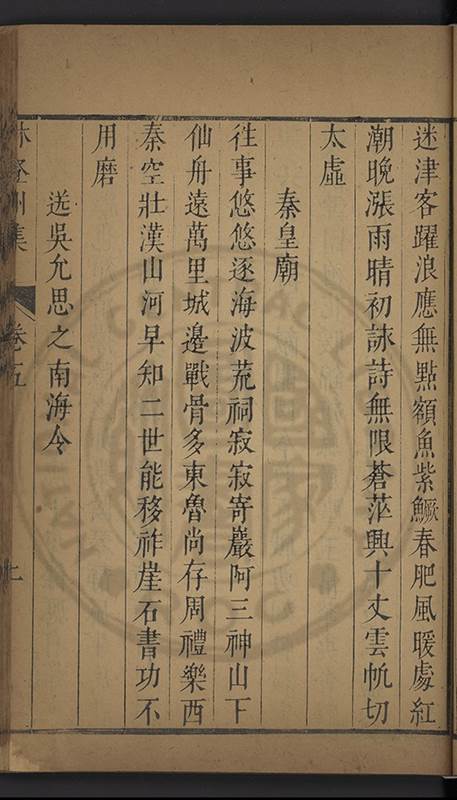 迷津客躍浪應無點額魚紫鱖春肥風暖處紅
潮晚漲雨晴初詠詩無限蒼茫興十丈雲帆切
太虛
秦皇廟
往事悠悠逐海波荒祠寂寂寄巖阿三神山下
仙舟遠萬里城邊戰骨多東魯尚存周禮樂西
秦空壯漢山河早知二世能移祚崖石書功不
用磨
送吳允思之南海令
集 卷五